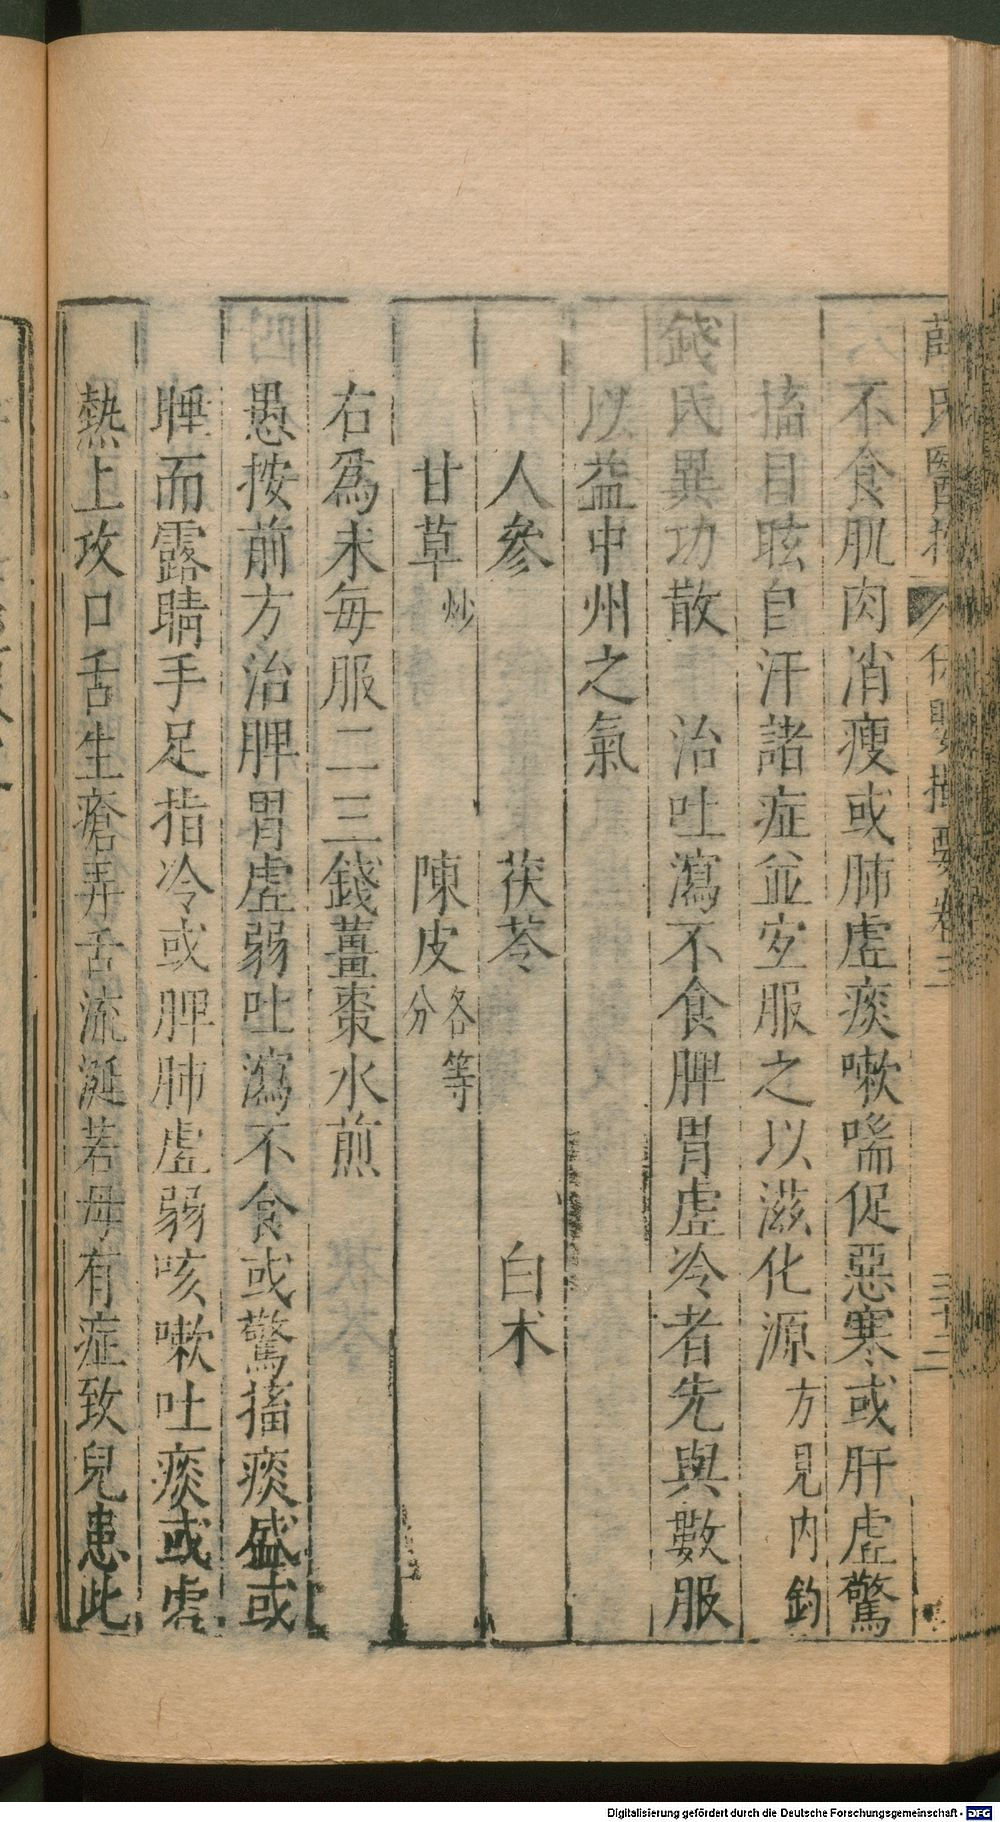 薛氏醫按 保嬰撮要卷三 三十二
不食肌肉消瘦或肺虛痰嗽喘促惡寒或肝虛驚
搐目眩自汗諸症並宜服之以滋化源方見内釣
錢氏異功散 治吐瀉不食脾胃虛冷者先與數服
以益中州之氣
人參 茯苓 白术
甘草炒 陳皮各等分
右爲末每服二三錢薑棗水煎
愚按前方治脾胃虛弱吐瀉不食或驚搐痰盛或
睡而露睛手足指冷或脾肺虛弱咳嗽吐痰或虛
熱上攻口舌生瘡弄舌流涎若母有症致兒患此
Digitalisierung gefördert durch die Deutsche Forschungsgemeinschaft - DFG